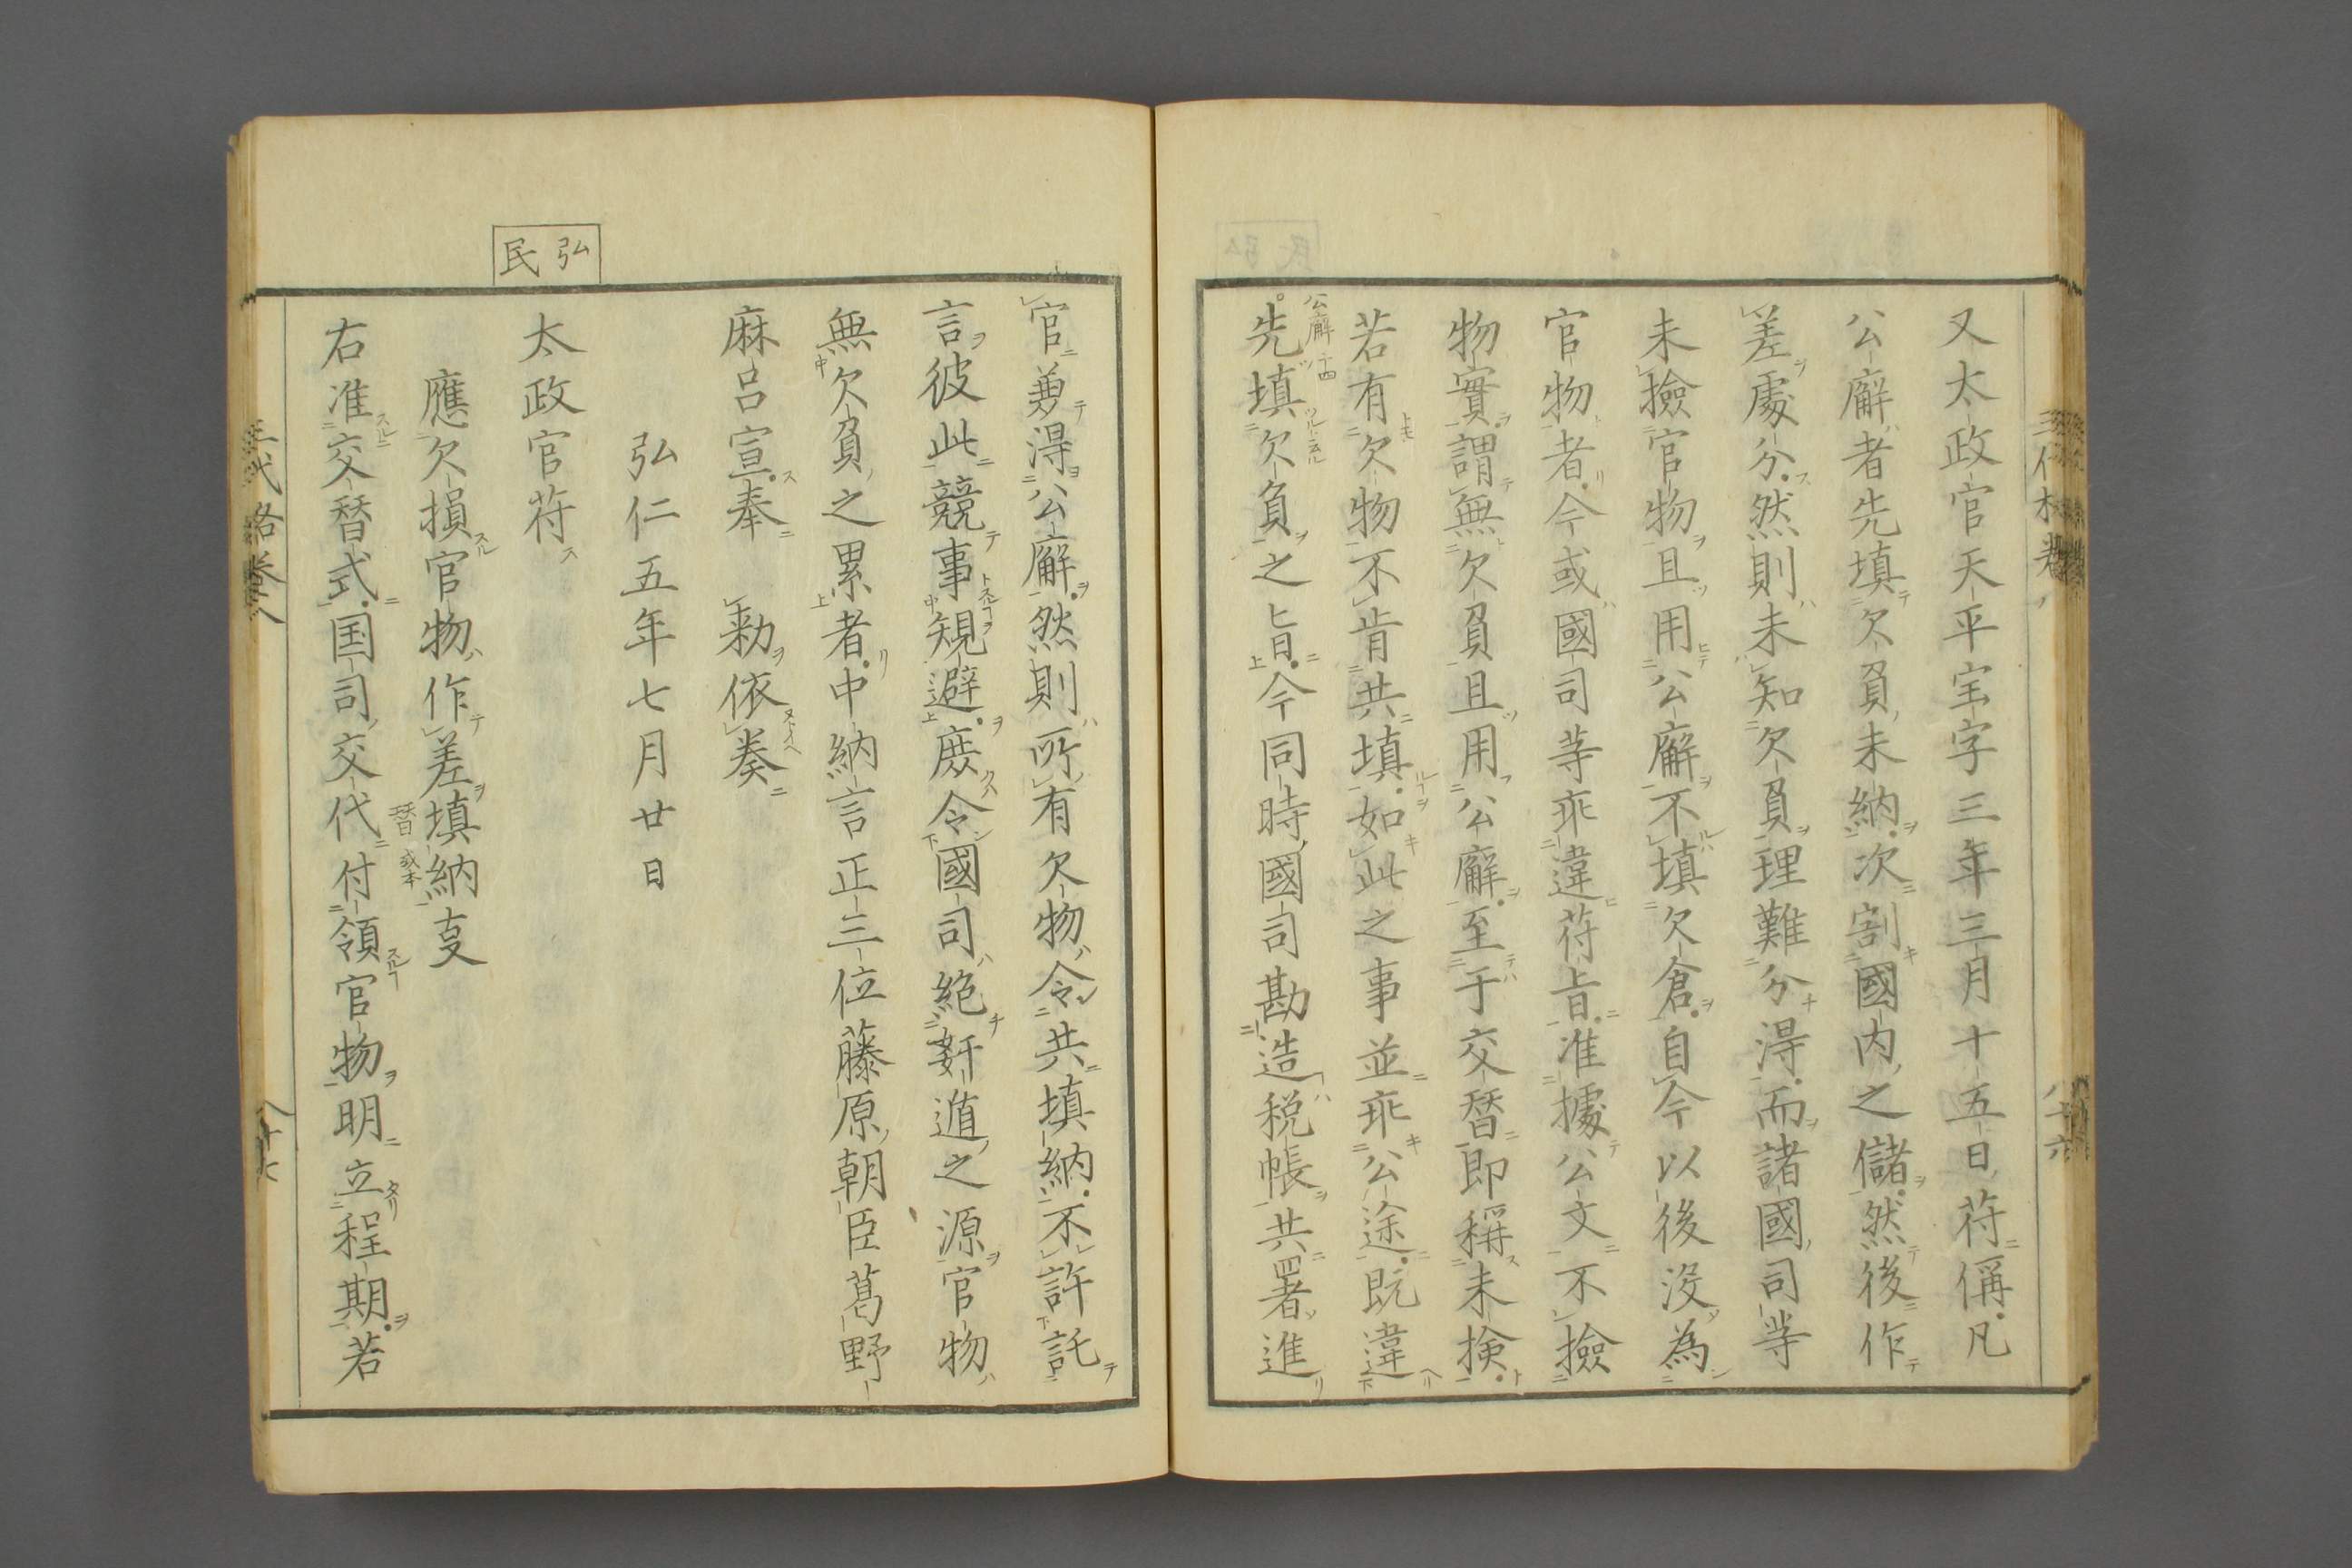 又太政官天平宝字三年三月十五日符偁凡
公廨者先填欠負未納次割國内之儲然後作
差處分然則未知欠負理難分得而諸國司等
未撿官物且用公廨不填欠倉自今以後没為
官物者今或國司等乖違符旨准據公文不撿
物實謂無欠負且用公廨至于交替即稱未検
若有欠物不肯共填如此之事並乖公途既違
公廨十四
先填欠負之旨今同時國司勘造税帳共署進
官兼得公廨然則所有欠物令共填納不許託
言彼此競事規避庶令國司絶姧遁之源官物
無欠負之累者中納言正三位藤原朝臣葛野
麻呂宣奉　勅依奏
弘仁五年七月廿日
弘民
太政官符
應欠損官物作差填納㕝
替或本
右准交替式国司交代付領官物明立程期若
三代格卷八